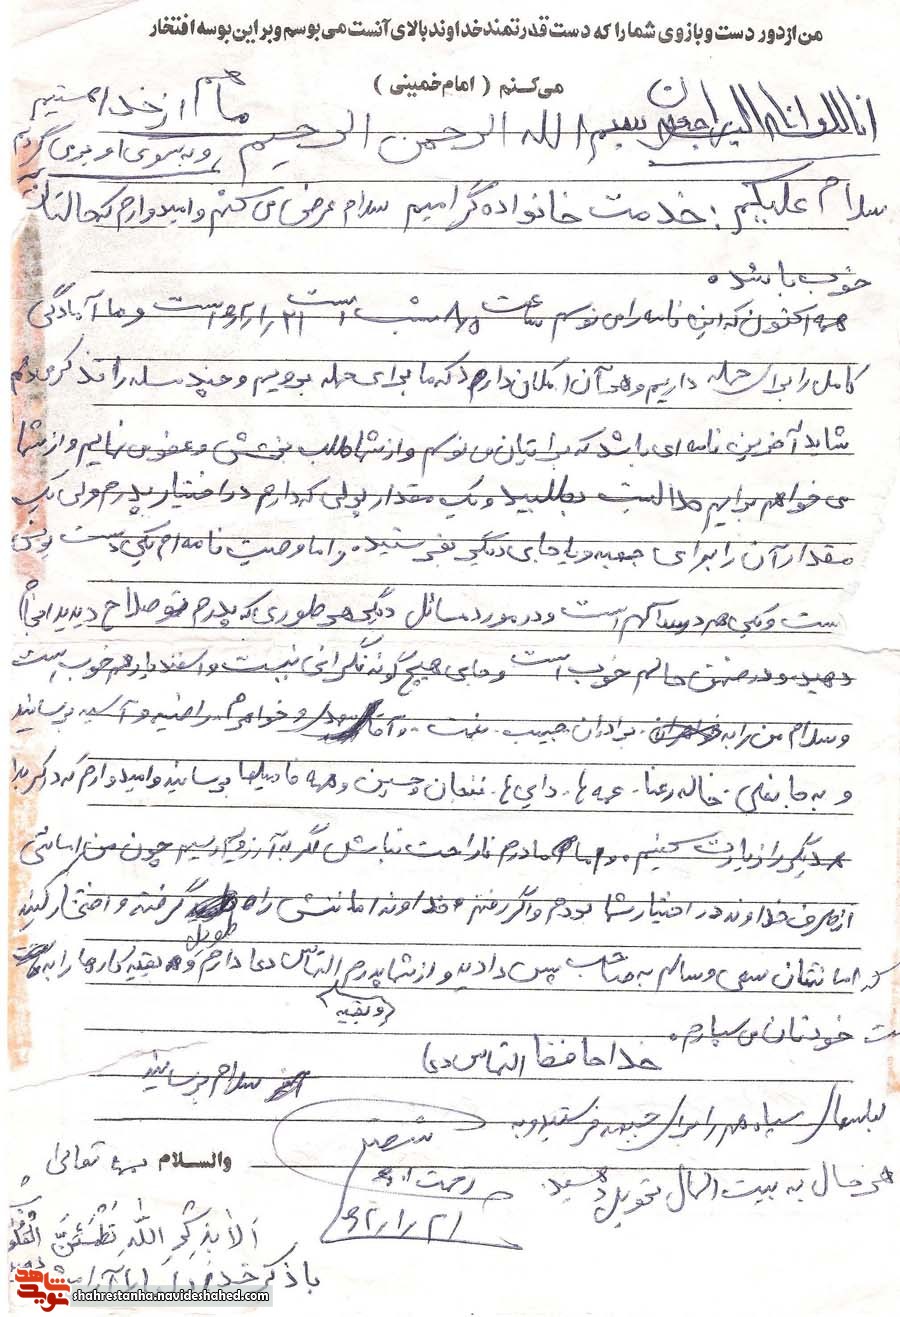 من از دور دست و بازوی شما را که دست قدرتمند خداوند بالای آنست می‌بوسم و بر این بوسه افتخار
می‌کنم (امام خمینی)
انا لله و انا الیه راجعون
ما هم از خدا هستیم
و به سوی او بر می گردیم
بسم الله الرحمن الرحیم
سلام علیکم: خدمت خانواده گرامیم سلام عرض می کنم و امیدوارم که حالتان
خوب باشد.
هم اکنون که این نامه را می نویسم ساعت ۸ شب است ۲۱ است و ما آمادگی
کامل را برای حمله داریم و هر آن امکان دارد که ما برای حمله برویم و چند مسله را تذکر می دهم
شاید آخرین نامه ای باشد که برایتان می نویسم و از شما طلب بخشش و عفو می نمایم و از شما
می خواهم برایم حلالیت بطلبید و یک مقدار پولی که دارم در اختیار پدرم ولی یک
مقدار آن را برای جبهه و یا جای دیگر بفرستید. و اما وصیت نامه ام یکی دست
است و یکی هم در ساکم است و در مورد مسائل دیگر هر طوری که پدرم تو صلاح دیدید انجام
دهید. و در ضمن حالم خوب است و جای هیچ گونه نگرانی نیست و اسفندیار هم خوب است
و سلام من را به برادران حبیب و خواهرم راضیه و آسیه برسانید
و به خاله رعنا. عمه ها. دایی ها. و حسین و همه فامیلها برسانید و امیدوارم که در کربلا
همدیگر را زیارت کنیم. و اما مادرم ناراحت نباش اگر به آرزویم رسیدم چون من امانتی
از طرف خداوند در اختیار شما بودم و اگر رفتم خداوند امانتش را گرفته و افتخار کنید
که امانتتان سالم به صاحب پس دادید و از شما پدرم التماس دعا دارم و بقیه کارها را به
تحویل
(و بقیه)
خودتان می سپارم.
خدا حافظ التماس دعا
سلام برسانید
لباسهای سپاه هم را برای جبهه فرستید و به
هر حال به بیت المال تحویل دهید.
والسلام
بسمه تعالی
رحمت اله
الا بذکر الله تطمئن القلوب
با ذکر خدا دل آرام
نوید شاهد
shahrestanha.navideshahed.com